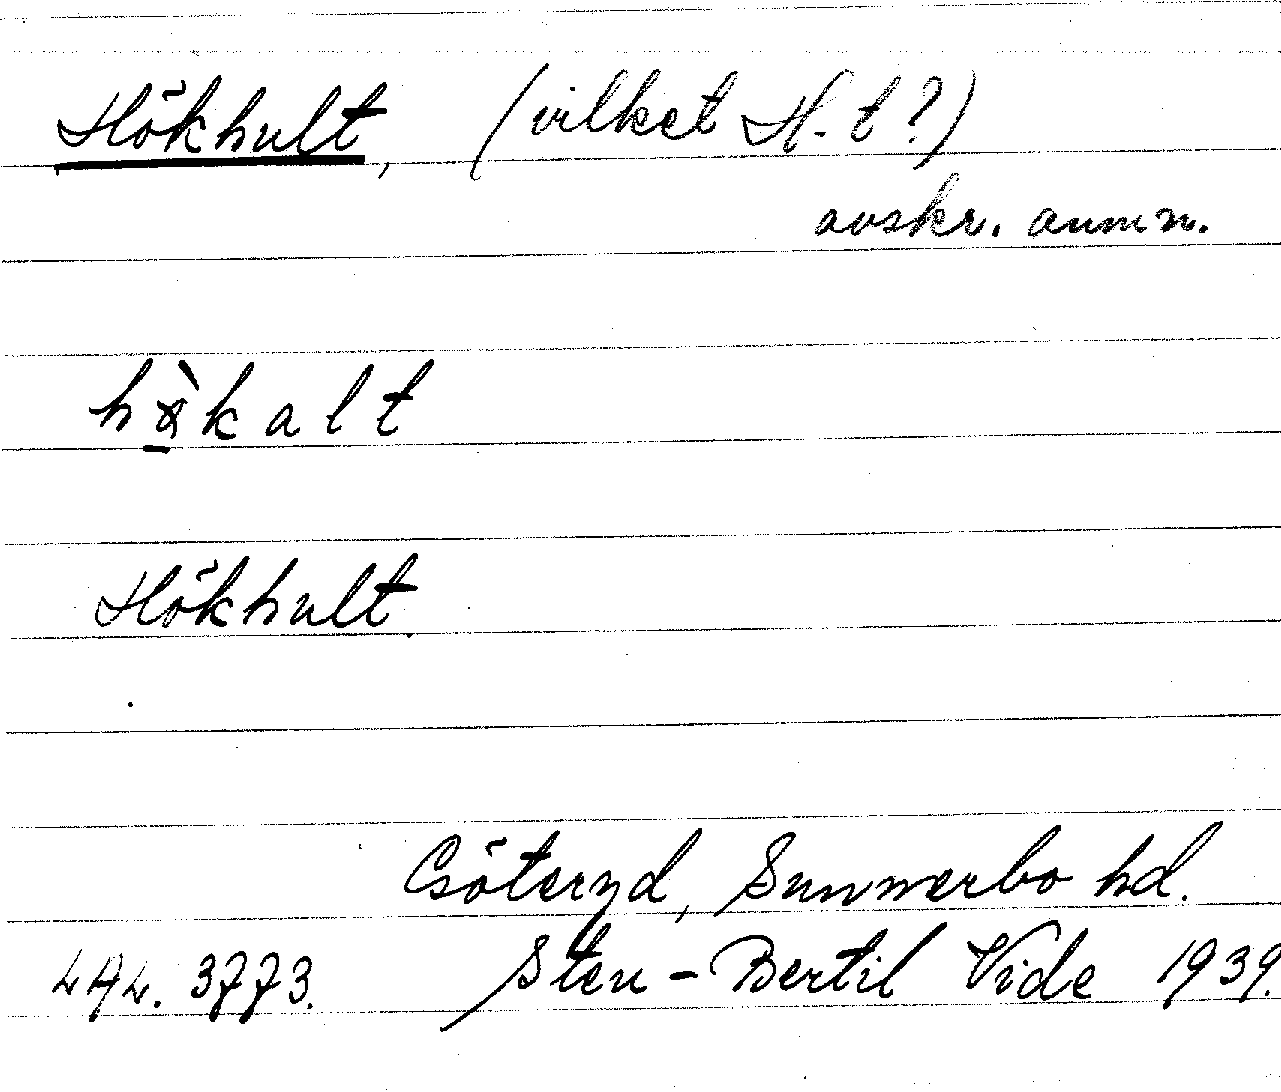 Hökhult, (vilket H-t?)
avskr. anm n.
hø̀kalt
Hökhult
Göteryd, Sunnerbo hd.
LAL. 3773. Sten-Bertil Vide 1939.